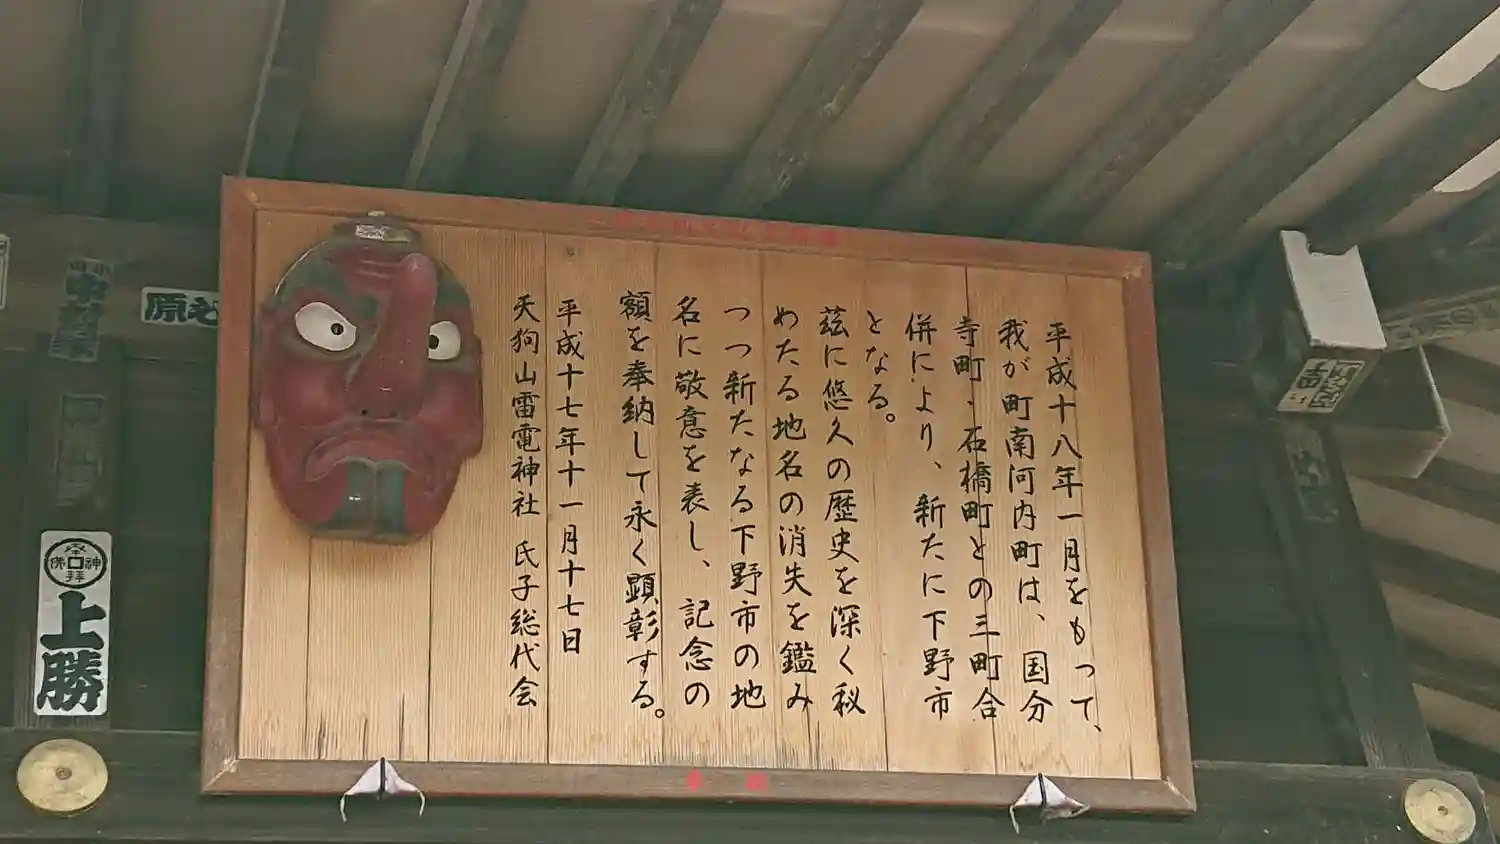 平成十八年一月をもって、
我が町南河内町は、国分
寺町・石橋町との三町合
併により、新たに下野市
となる。
玆に悠久の歴史を深く秘
めたる地名の消失を鑑み
つつ新たなる下野市の地
名に敬意を表し、記念の
額を奉納して永く顕彰する。
平成十七年十一月十七日
天狗山雷電神社 氏子総代会
上勝